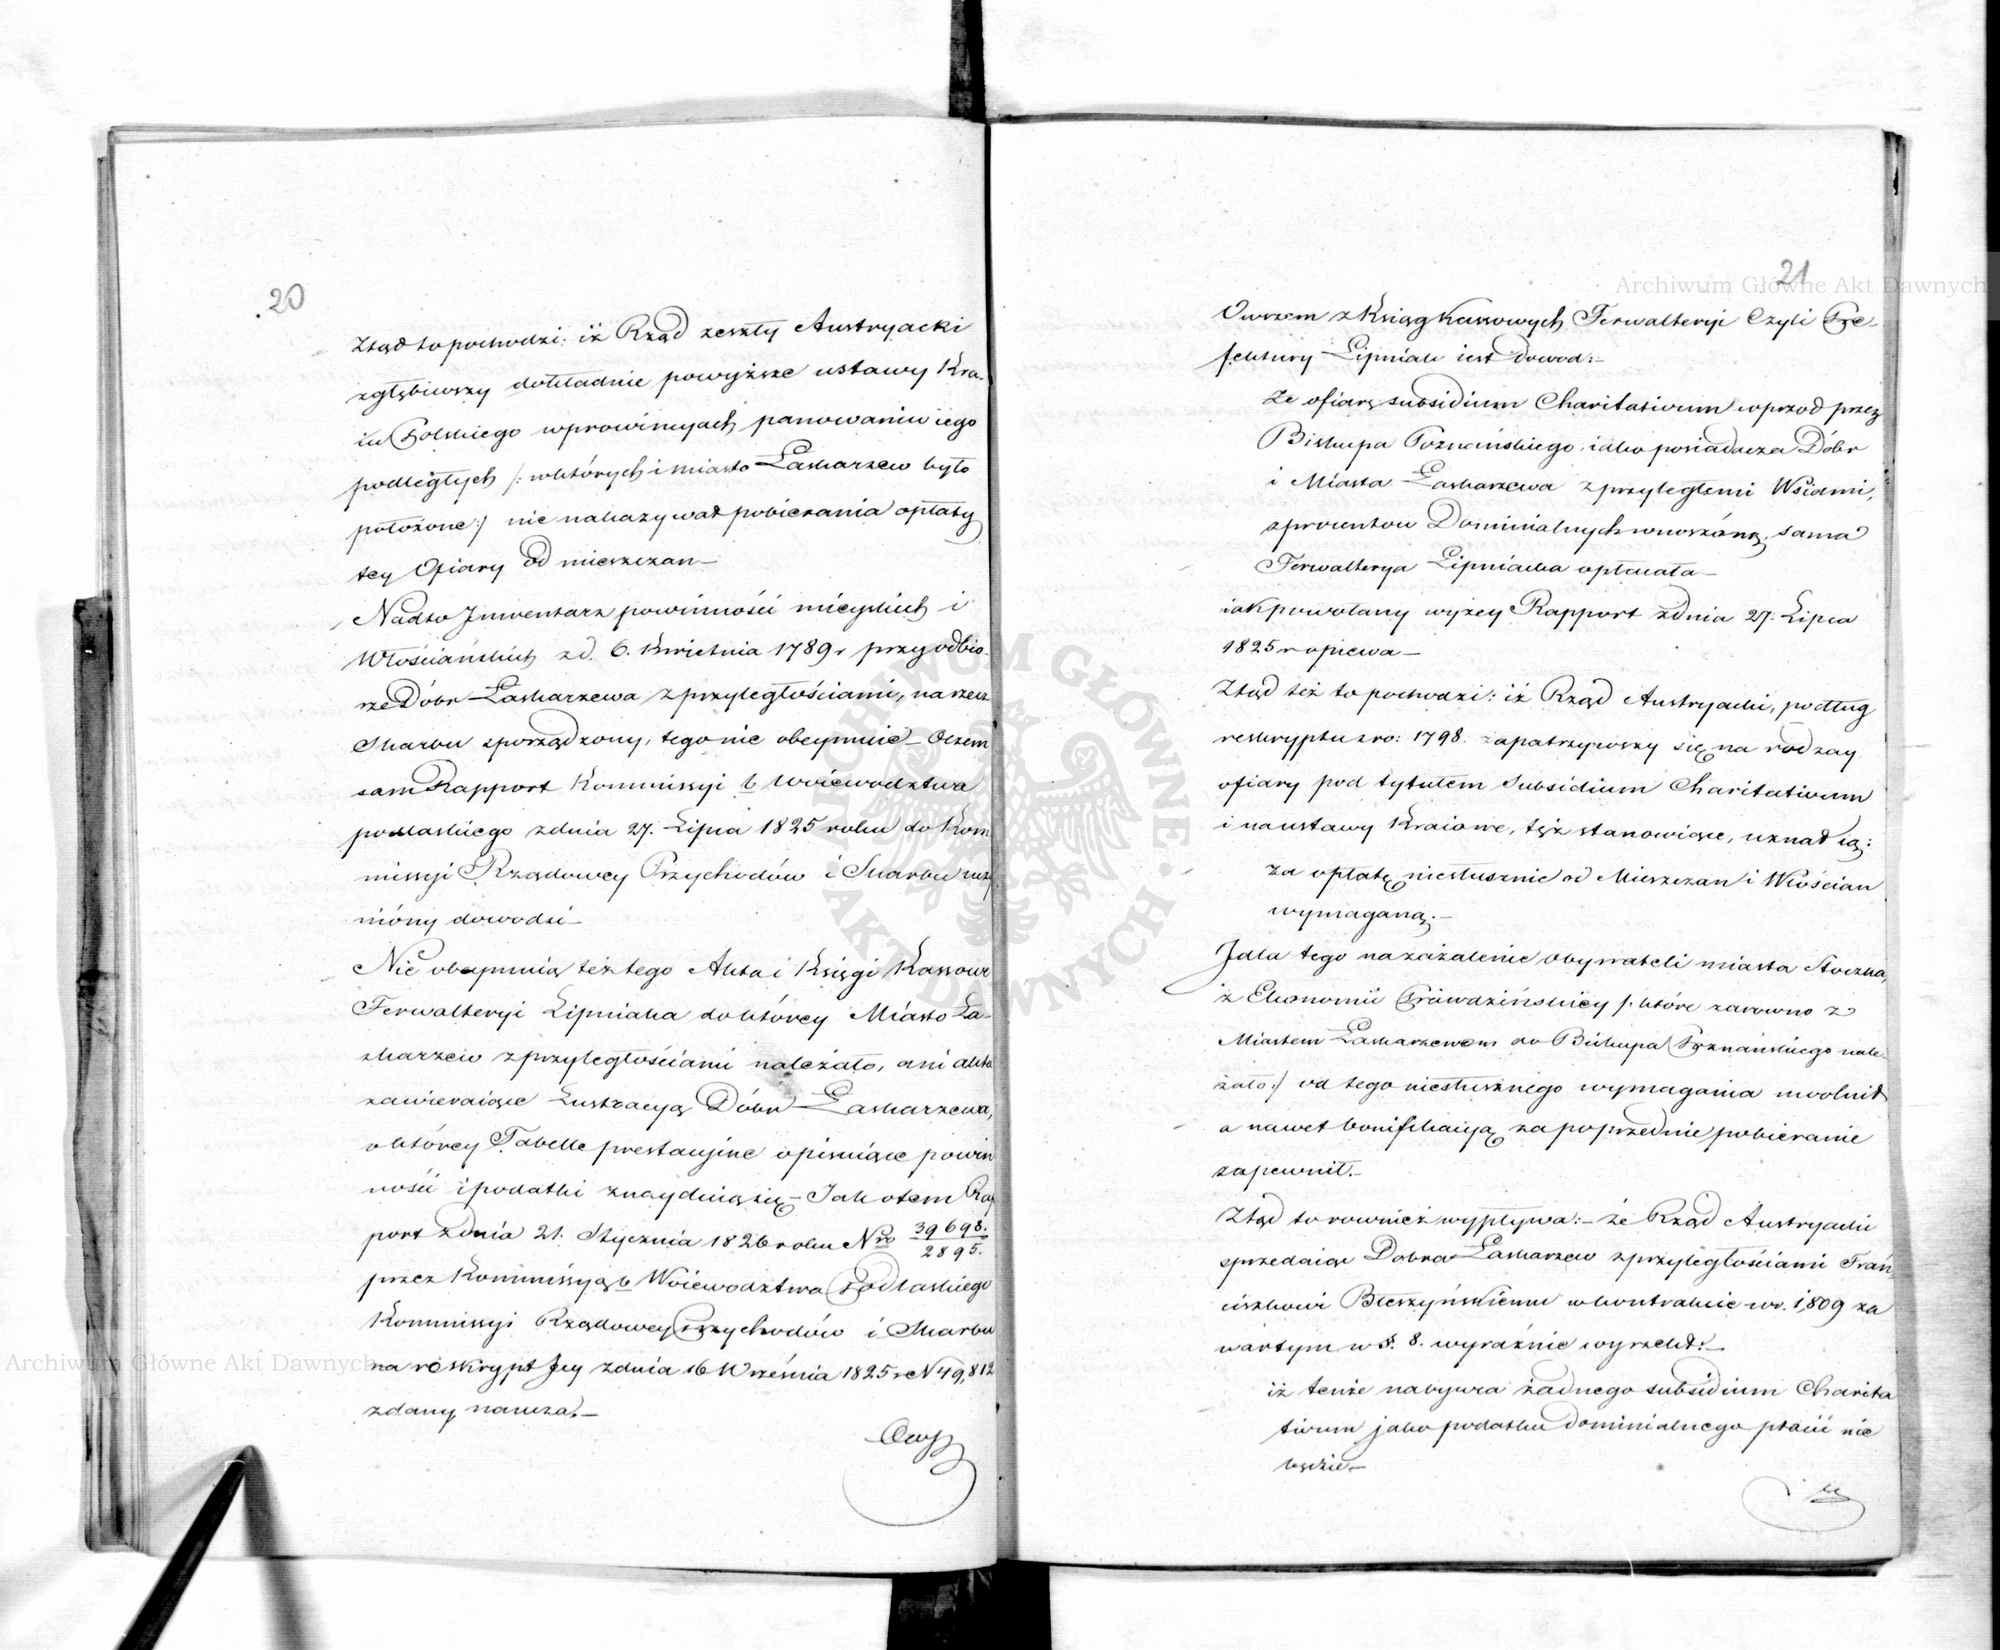 20
Ztąd to pochodzi: iż Rząd zeszły Austryacki
zgłębiwszy dokładnie powyższe ustawy Kra-
iu Polskiego w prowincyach panowaniu iego
podległych /: w których i miasto Łaskarzew było
położone:/ nie nakazywał pobierania opłaty
tey Ofiary od mieszczan —
Nadto Inwentarz powinności mieyskich i
Włościańskich z d. 6. Kwietnia 1789 r przy odbio-
rze Dóbr Łaskarzewa z przyległościami, na rzecz
Skarbu sporządzony, tego nie obeymuie — O czem
sam Rapport Kommissyi b Woiewodztwa
podlaskiego z dnia 27. Lipca 1825 roku do Kom
missyi Rządowey Przychodów i Skarbu uczy
niony dowodzi —
Nie obeymuią też tego Akta i Księgi Kassowe
Ferwalteryi Lipniaka do którey Miasto Ła-
skarzew z przyległościami należało, ani akta
zawieraiące Lustracyą Dóbr Łaskarzewa,
w którey Tabelle prestacyine opisuiące powin
ności i podatki znayduią się — Jak o tem Rap
port z dnia 21. Stycznia 1826 roku Nro 39698./2895.
przez Kommissyą b Woiewodztwa Podlaskiego
Kommissyi Rządowey Przychodów i Skarbu
na reskrypt Jey z dnia 16 Września 1825 r N 49,812
zdany naucza. —
21
Owszem z Ksiąg Kassowych Ferwalteryi Czyli Pre-
fektury Lipniak iest dowod: —
że ofiarę subsidium Charitativum wprzod przez
Biskupa Poznańskiego, iako posiadacza Dóbr
i Miasta Łaskarzewa z przyległemi Wsiami,
z prowentow Dominialnych wnoszoną, sama
Ferwalterya Lipniacka opłacała —
iak powołany wyżey Rapport z dnia 27. Lipca
1825 r opiewa —
Ztąd też to pochodzi: iż Rząd Austryacki, podług
reskryptu z ro: 1798. zapatrzywszy się na rodzay
ofiary pod tytułem Subsidium Charitativum
i na ustawy Kraiowe, też stanowiące, uznał ią:
za opłatę niesłusznie od Mieszczan i Włościan
wymaganą. —
I dla tego na zażalenie obywateli miasta Stoczka,
z Ekonomii Prawdzińskiey /: które zarowno z
Miastem Łaskarzewem do Biskupa Poznańskiego nale-
żało:/ od tego niesłusznego wymagania uwolnił
a nawet bonifikacyą za poprzednie pobieranie
zapewnił. —
Ztąd to rownież wypływa: — że Rząd Austryacki
sprzedaiąc Dobra Łaskarzew z przyległościami Fran-
ciszkowi Breszyńskiemu w kontrakcie w r. 1809 za
wartym w §. 8. wyraźnie wyrzekł: —
iż tenże nabywca żadnego subsidium Charita
tivum jako podatku dominialnego płacić nie
będzie —